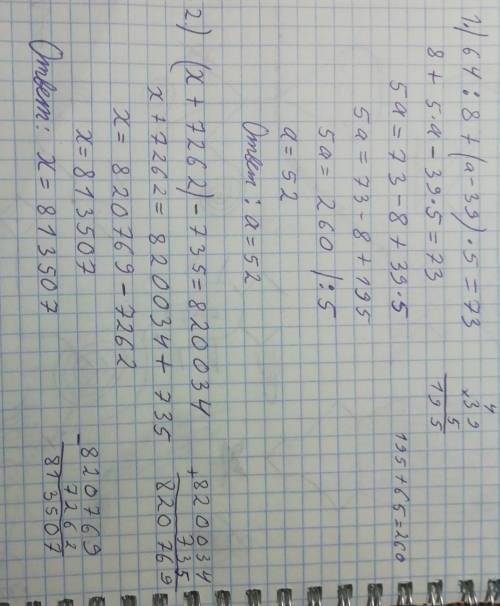 1.) 64:8+(a-39)·5=73
8+5·a-39·5=73
5a=73-8+39·5
5a=73-8+195
5a=260 |:5
a=52
Ответ: a=52
4
×39
5
195
195+65=260
2.) (x+7262)-735=820034
x+7262=820034+735
x=820769-7262
x=813507
Ответ: x=813507
+820034
735
820769
-820769
7262
813507